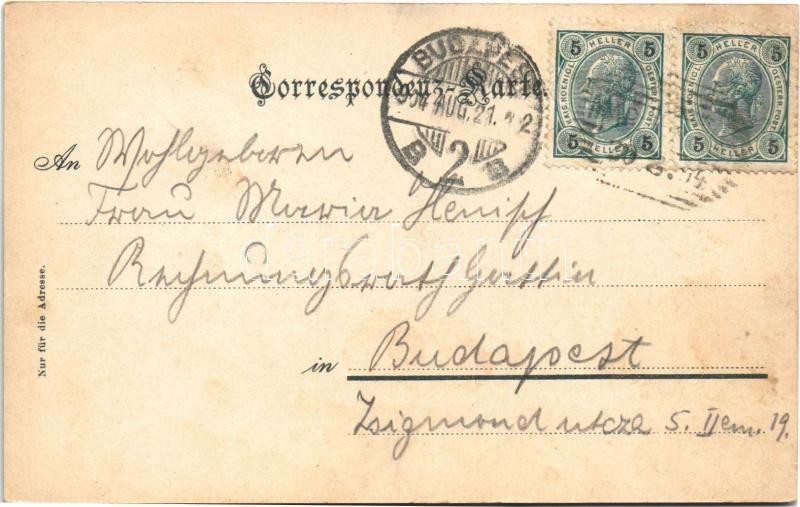 Correspondenz-Karte.
BUDAPEST
904 AUG. 21.
2
B B
5 HELLER 5
KAIS. KOENIGL. OESTERR. POST.
5 HELLER 5
5 HELLER 5
KAIS. KOENIGL. OESTERR. POST.
5 HELLER 5
An Wohlgeboren
Frau Maria Henisch
Rechnungsrath Gattin
in Budapest
Zsigmond utcza 5. II em. 19.
Nur für die Adresse.
darabanth